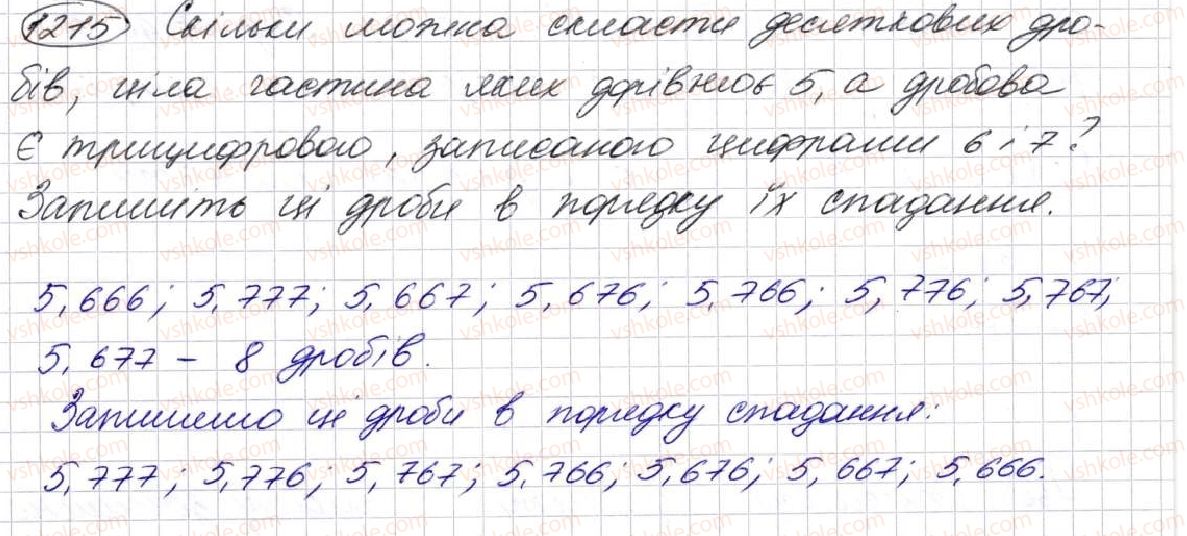 1215 Скільки можна скласти десяткових дро-
бів, ціла частина яких дорівнює 5, а дробова
є трицифровою, записаною цифрами 6 і 7?
Запишіть ці дроби в порядку їх спадання.
5,666; 5,777; 5,667; 5,676; 5,766; 5,776; 5,767;
5,677 – 8 дробів.
Запишемо ці дроби в порядку спадання:
5,777; 5,776; 5,767; 5,766; 5,676; 5,667; 5,666.